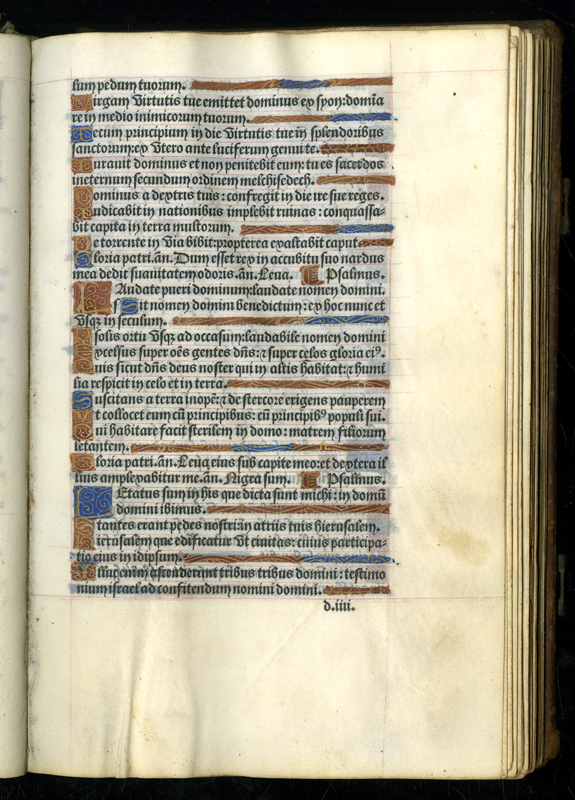 lum pedum tuorum.
Uirgam virtutis tue emittet dominus ex syon: domia
re in medio inimicorum tuorum.
Tecum principium in die virtutis tue in splendoribus
sanctorum: ex vtero ante luciferum genui te.
Iurauit dominus et non penitebit eum: tu es sacerdos
ineternum secundum ordinem melchisedech.
Dominus a dextris tuis: confregit in die ire sue reges.
Iudicabit in nationibus implebit ruinas: conquassa-
bit capita in terra multorum.
De torrente in via bibit: propterea exaltabit caput
Gloria patri. añ. Dum esset rex in accubitu suo nardus
mea dedit suauitatem odoris. añ. Leua. Psalmus.
LAudate pueri dominum: laudate nomen domini.
Sit nomen domini benedictum: ex hoc nunc et
vsqȝ in seculum.
A solis ortu vsqȝ ad occasum: laudabile nomen domini
Excelsus super oēs gentes dñs: ⁊ super celos gloria eiꝰ.
Quis sicut dñs deus noster qui in altis habitat: ⁊ humi
lia respicit in celo et in terra.
Suscitans a terra inopē: ⁊ de stercore erigens pauperem
Ut collocet eum cū principibus: cū principibꝰ populi sui.
Qui habitare facit sterilem in domo: matrem filiorum
letantem.
Gloria patri. añ. Leua eius sub capite meo: et dextera il
lius amplexabitur me. añ. Nigra sum. Psalmus.
LEtatus sum in his que dicta sunt michi: in domū
domini ibimus.
Stantes erant pedes nostri: in atriis tuis hierusalem.
Hierusalem que edificatur vt ciuitas: cuius participa-
tio eius in idipsum.
Illuc enim ascenderunt tribus tribus domini: testimo
nium israel ad confitendum nomini domini.
d.iiii.